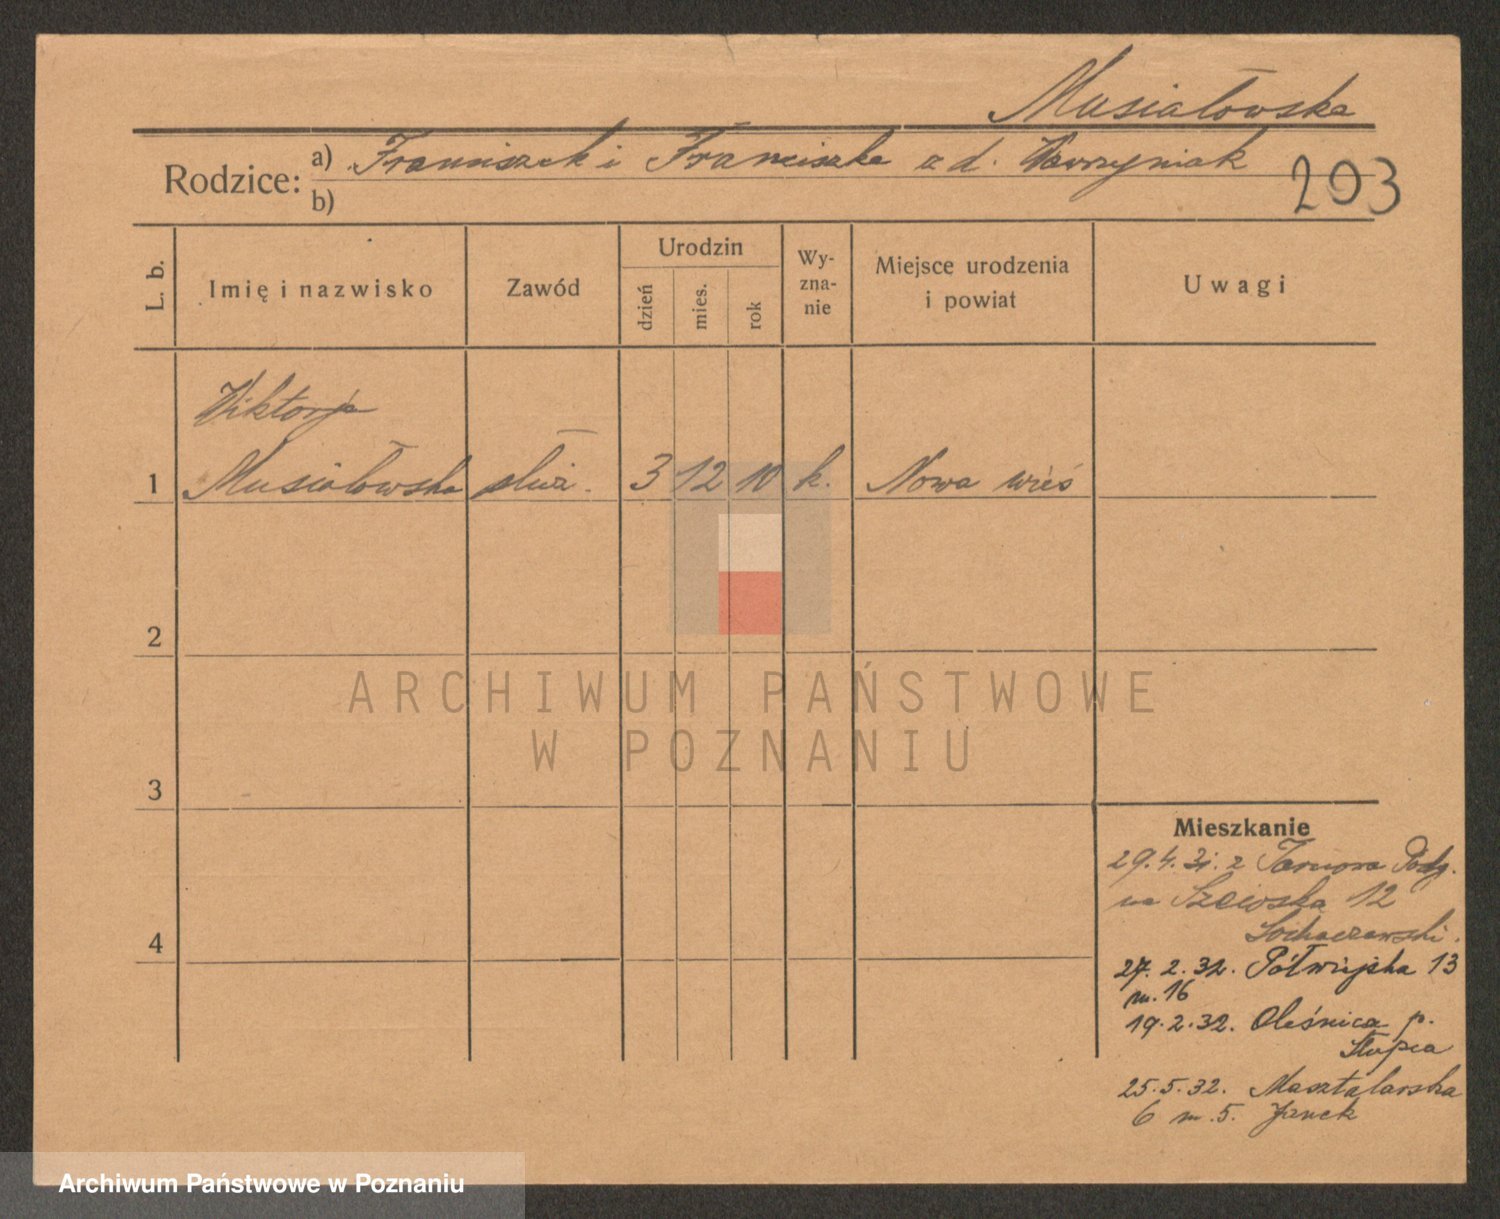 Musiałowska
Rodzice: a) Franciszek i Franciszka z d. Wawrzyniak
b)
203
L. b.
Imię i nazwisko
Zawód
Urodzin
dzień
mies.
rok
Wy-
zna-
nie
Miejsce urodzenia
i powiat
Uwagi
Wiktorja
1 Musiałowska służ. 3 12 10 k. Nowa wieś
2
ARCHIWUM PAŃSTWOWE
W POZNANIU
3
4
Mieszkanie
29.4.31. z Tarnowa Podg.
na Szewska 12
Sochaczewski.
27. 2. 32. Półwiejska 13
m. 16
19. 2. 32. Oleśnica p.
Słupca
25. 5. 32. Masztalarska
6 m. 5. Janek
Archiwum Państwowe w Poznaniu